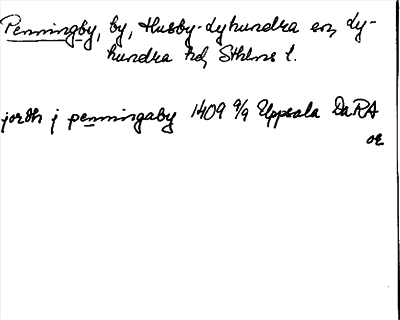 Penningby, by, Husby-Lyhundra sn, Ly-
hundra hd, Sthlms l.
jordh j penningaby 1409 9/9 Uppsala DaRA
or